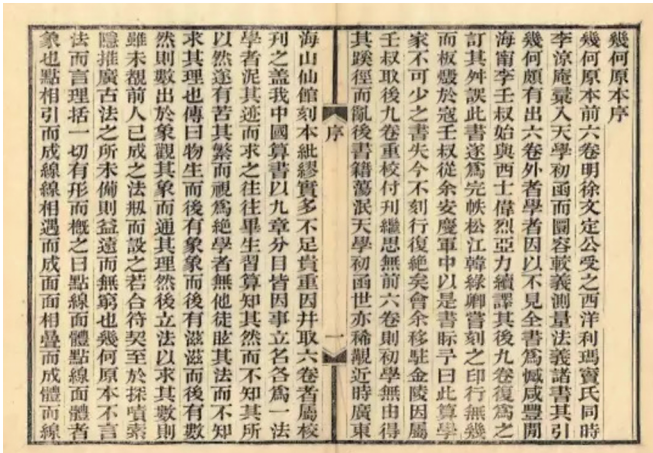 幾何原本序
幾何原本前六卷明徐文定公受之西洋利瑪竇氏同時
李涼庵彙入天學初函而圜容較義測量法義諸書其引
幾何頗有出六卷外者學者因以不見全書爲憾咸豐間
海甯李壬叔始與西士偉烈亞力續譯其後九卷復爲之
訂其舛誤此書遂爲完帙松江韓綠卿嘗刻之印行無幾
而板燬於寇壬叔從余安慶軍中以是書眎予曰此算學
家不可少之書失今不刻行復絕矣會余移駐金陵因屬
壬叔取後九卷重校付刊繼思無前六卷則初學無由得
其蹊徑而亂後書籍蕩泯天學初函世亦稀覯近時廣東
序
一
海山仙館刻本紕繆實多不足貴重因并取六卷者屬校
刊之蓋我中國算書以九章分目皆因事立名各爲一法
學者泥其迹而求之往往畢生習算知其然而不知其所
以然遂有苦其繁而視爲絕學者無他徒眩其法而不知
求其理也傳曰物生而後有象象而後有滋滋而後有數
然則數出於象觀其象而通其理然後立法以求其數則
雖未覩前人已成之法剏而設之若合符契至於探賾索
隱推廣古法之所未備則益遠而無窮也幾何原本不言
法而言理括一切有形而概之曰點線面體點線面體者
象也點相引而成線線相遇而成面面相疊而成體而線